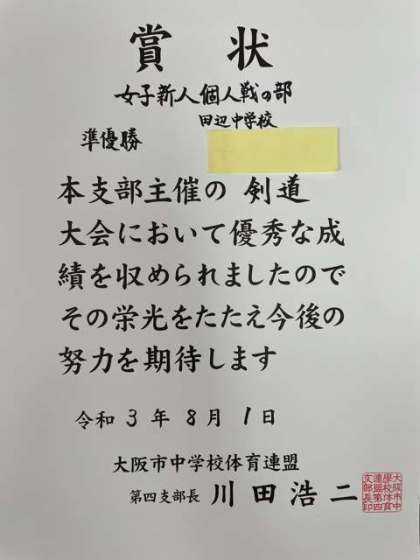 賞状
女子新人個人戦の部
田辺中学校
準優勝
本支部主催の 剣道
大会において優秀な成
績を収められましたので
その栄光をたたえ今後の
努力を期待します
令和 3 年 8 月 1 日
大阪市中学校体育連盟
第四支部長 川田浩二